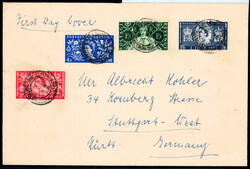 First Day Cover
Mr Albrecht Kohler
34 Kornberg Strasse
Stuttgart-West
Württ.
Germany